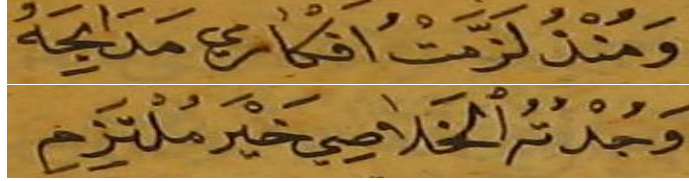 وَمُنْذُ لَزَّمَتُْ افْكَارِي مَدَايِحَهُ
وَجُدْتُهُ اُلْخَلَاصِي خَيْرَ مُلْتَزِمِ